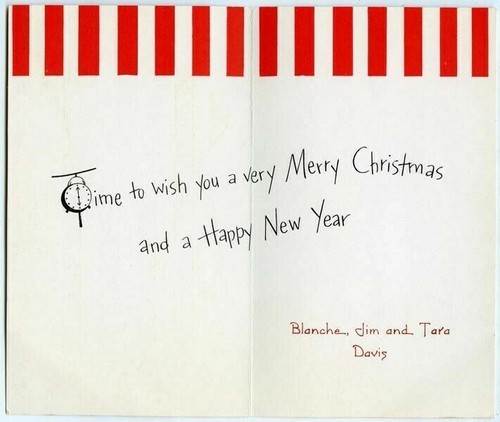 Time to wish you a very Merry Christmas
and a Happy New Year
Blanche, Jim and Tara
Davis